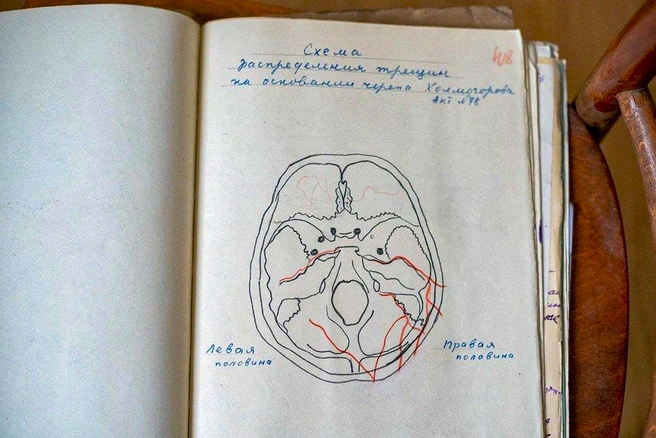 Схема
распределения трещин
на основании черепа Холмогорова
Акт №78
Левая
половина
Правая
половина